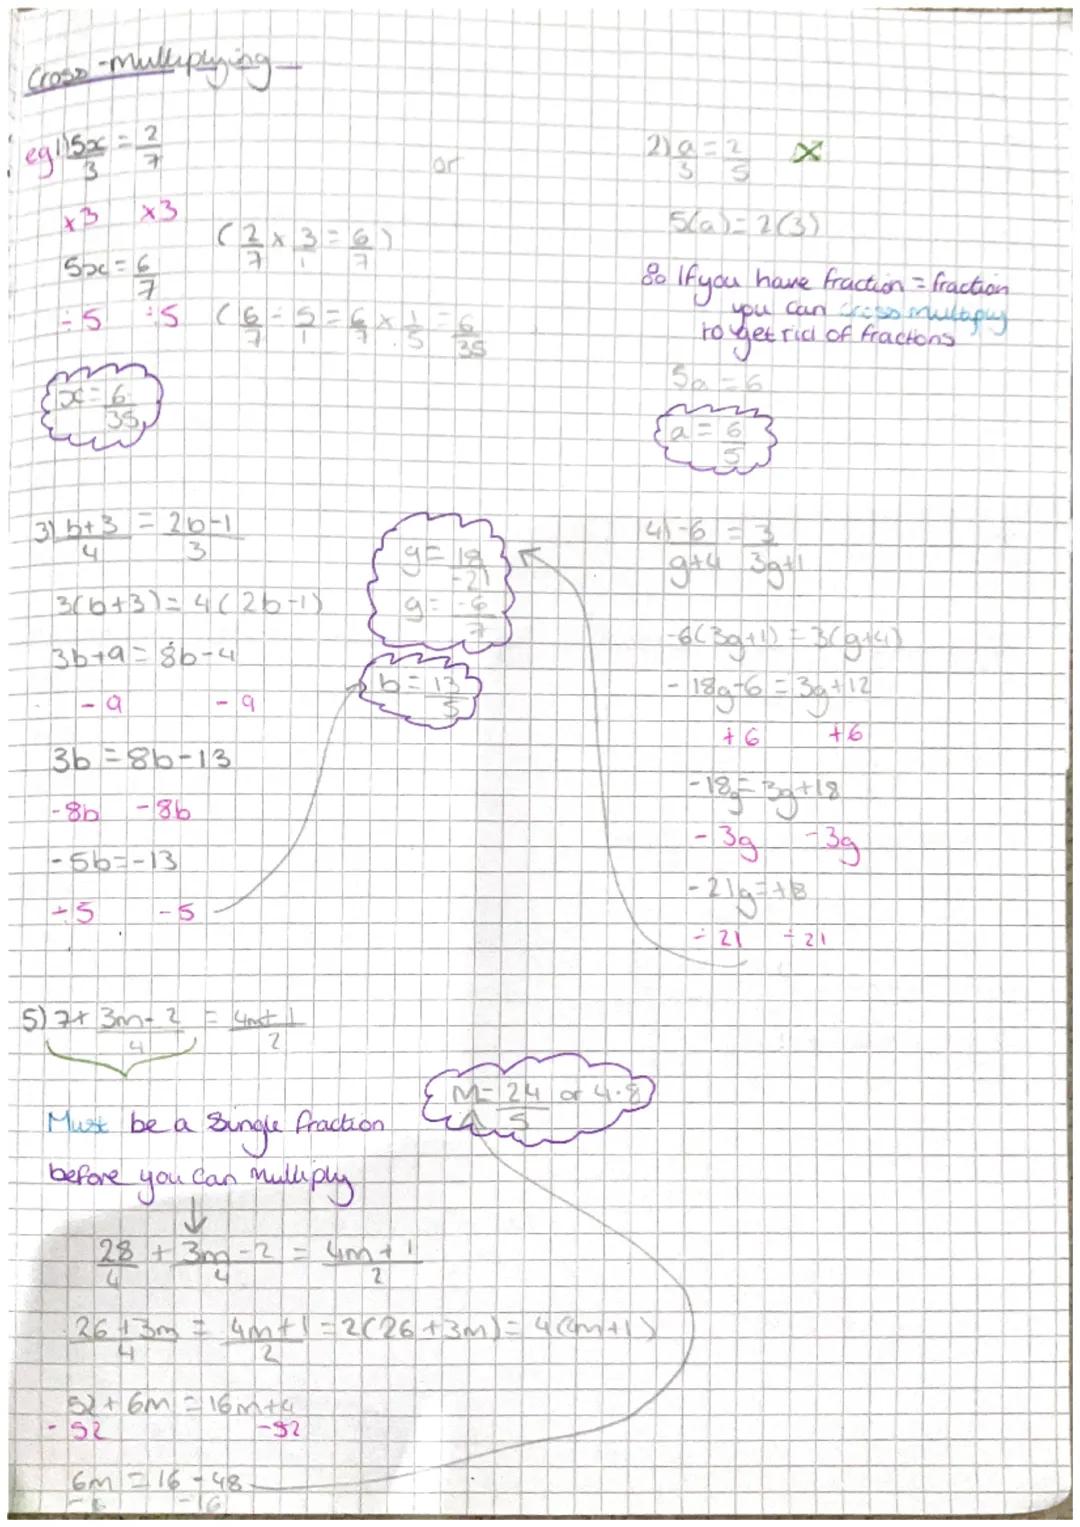 Cross-multiplying
eg 1) 5x/3 = 2/7
×3 ×3
(2/7 × 3/1 = 6/7)
5x = 6/7
÷5 ÷5 (6/7 ÷ 5/1 = 6/7 × 1/5 = 6/35)
x = 6/35
or
2) a/3 = 2/5 X
5(a) = 2(3)
So If you have fraction = fraction
you can cross multiply
to get rid of fractions
5a = 6
a = 6/5
3) b+3/4 = 2b-1/3
3(b+3) = 4(2b-1)
3b+9 = 8b-4
-9 -9
3b = 8b-13
-8b -8b
-5b = -13
÷5 -5
b = 13/5
g = 18/-21
g = -6/7
4) -6/g+4 = 3/3g+1
-6(3g+1) = 3(g+4)
-18g-6 = 3g+12
+6 +6
-18g = 3g+18
-3g -3g
-21g = +18
÷21 ÷21
5) 7 + 3m-2/4 = 4m+1/2
M = 24/5 or 4.8
Must be a single fraction
before you can multiply
28/4 + 3m-2/4 = 4m+1/2
26+3m/4 = 4m+1/2 = 2(26+3m) = 4(4m+1)
52+6m = 16m+4
-52 -52
6m = 16-48
-16